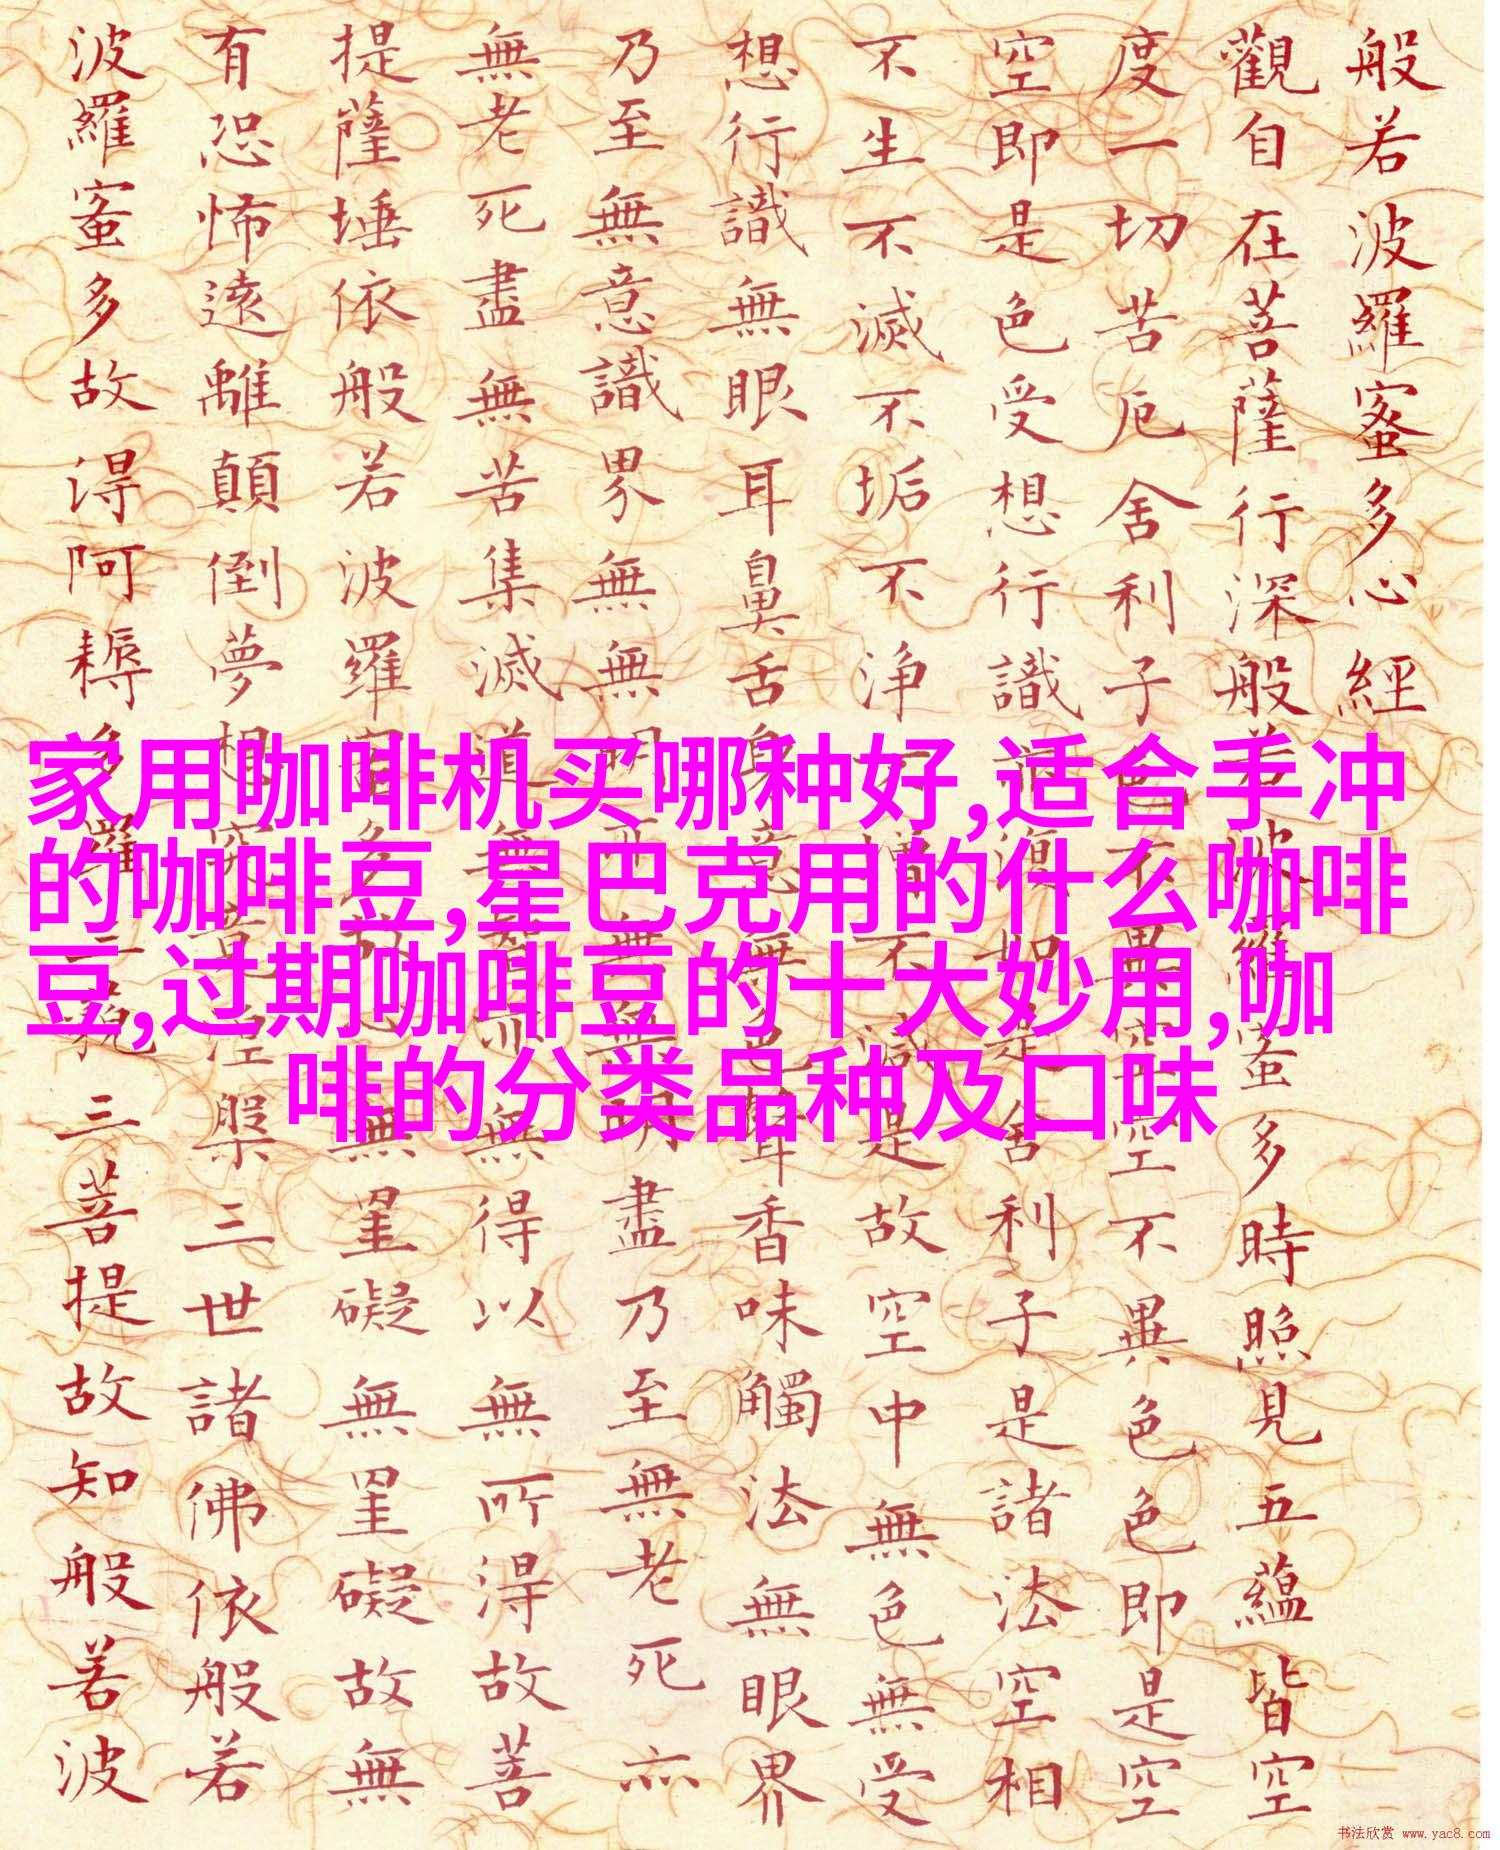 般若波羅蜜多心經
觀自在菩薩行深般若波羅蜜多時照見五蘊皆空
度一切苦厄舍利子色不異空空不異色色即是空
空即是色受想行識亦復如是舍利子是諸法空相
不生不滅不垢不净不增不減是故空中無色無受
想行識無眼耳鼻舌身意無色聲香味觸法無眼界
乃至無意識界無無明亦無無明盡乃至無老死亦
無老死盡無苦集滅道無智亦無得以無所得故菩
提薩埵依般若波羅蜜多故心無罣礙無罣礙故無
有恐怖遠離顛倒夢想究竟涅槃三世諸佛依般若
波羅蜜多故得阿耨多羅三藐三菩提故知般若波
家用咖啡机买哪种好,适合手冲
的咖啡豆,星巴克用的什么咖啡
豆,过期咖啡豆的十大妙用,咖
啡的分类品种及口味
书法欣赏 www.yac8.com